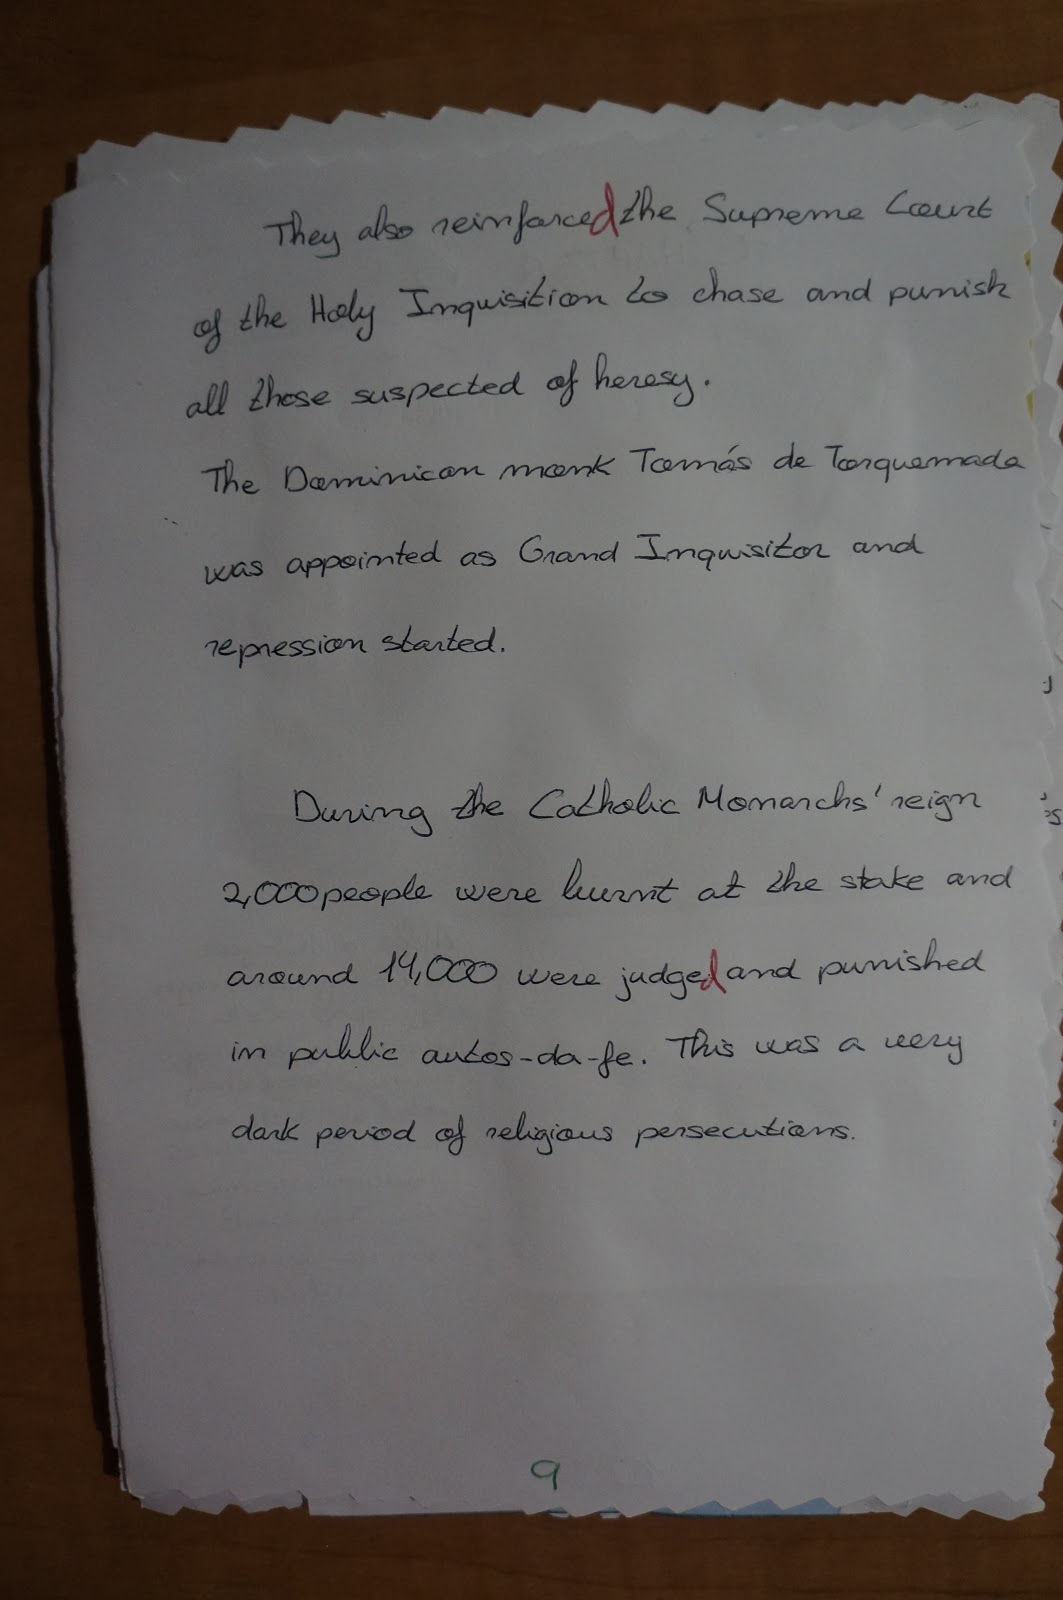 They also reinforced the Supreme Court
of the Holy Inquisition to chase and punish
all those suspected of heresy.
The Dominican monk Tomás de Torquemada
was appointed as Grand Inquisitor and
repression started.
During the Catholic Monarchs' reign
2,000 people were burnt at the stake and
around 14,000 were judged and punished
in public autos-da-fe. This was a very
dark period of religious persecutions.
9